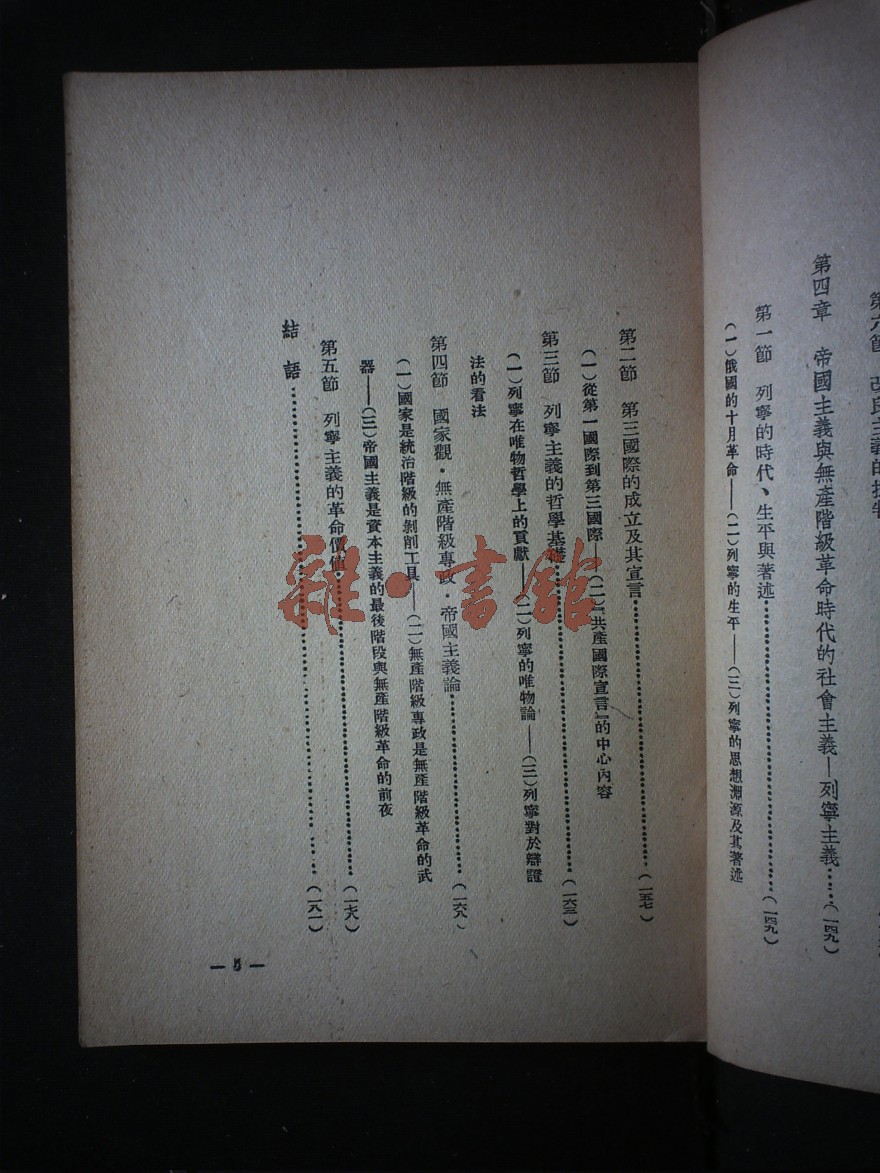 第四章　帝國主義與無產階級革命時代的社會主義—列寧主義……（一四九）
第一節　列寧的時代、生平與著述……（一四九）
（一）俄國的十月革命——（二）列寧的生平——（三）列寧的思想淵源及其著述
第二節　第三國際的成立及其宣言……（一五七）
（一）從第一國際到第三國際——（二）『共產國際宣言』的中心內容
第三節　列寧主義的哲學基礎……（一六三）
（一）列寧在唯物哲學上的貢獻——（二）列寧的唯物論——（三）列寧對於辯證
法的看法
第四節　國家觀·無產階級專政·帝國主義論……（一六八）
（一）國家是統治階級的剝削工具——（二）無產階級專政是無產階級革命的武
器——（三）帝國主義是資本主義的最後階段與無產階級革命的前夜
第五節　列寧主義的革命價值……（一七八）
結　語……（一八一）
— 5 —
雜·書館